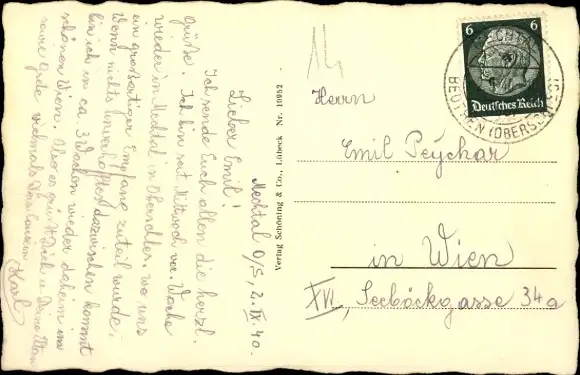 Mechtal O/S, 2. IX. 40.
Lieber Emil!
Ich sende Euch allen die herzl.
Grüße. Ich bin seit Mittwoch vor. Woche
wieder in Mechtal in Oberschles. wo uns
ein großartiger Empfang zuteil wurde.
Wenn nichts unverhofftes dazwischen kommt
bin ich in ca. 3 Wochen wieder daheim im
schönen Wien. Also es grüßt Dich u. Deine
sowie Grete vielmals Dein Cousin
Karl
Verlag Schöning & Co., Lübeck Nr. 10952
6 6
Deutsches Reich
BEUTHEN (OBERSCHLES)
Herrn
Emil Peÿchar
in Wien
XVI, Seeböckgasse 34a